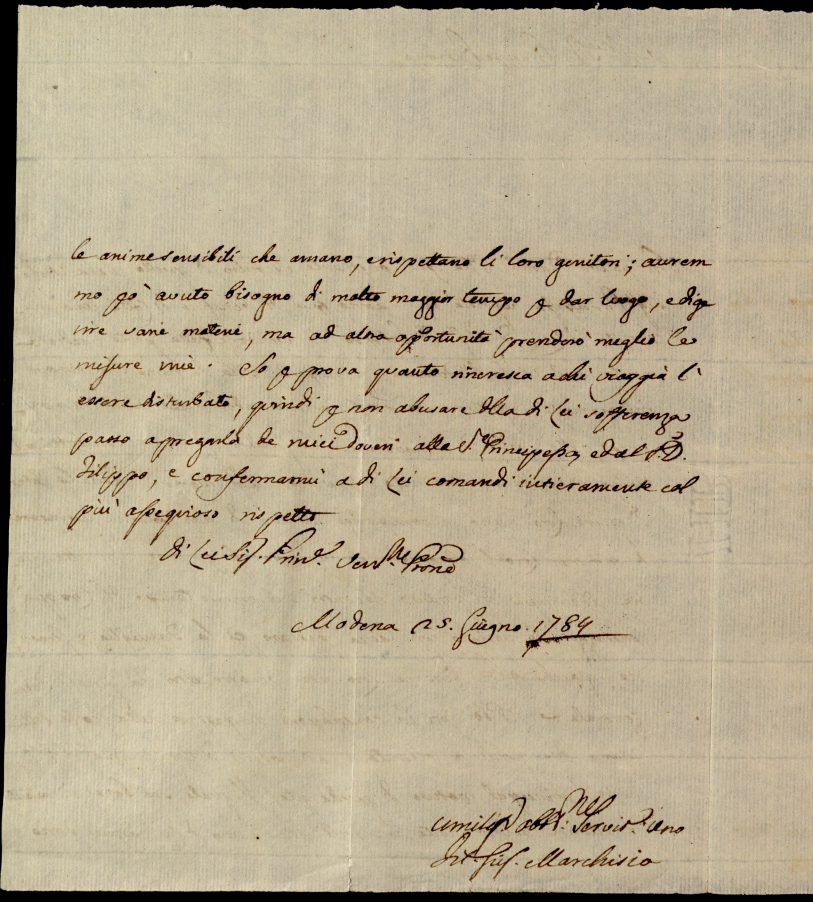 le anime sensibili che amano, e rispettano li loro genitori; aurem
mo ꝑò avuto bisogno di molto maggior tempo ꝑ dar luogo, e dige
rire varie materie, ma ad altra opportunità prenderò meglio le
misure mie. So ꝑ prova quanto rincresca a chi viaggia l'
essere disturbato, quindi ꝑ non abusare dlla di Lei sofferenza
passo a pregarla de miei doveri alla S.ra Principessa, ed al S. D.
Filippo, e confermarmi a di Lei comandi intieramente col
più ossequioso rispetto
di Lei Sig. Prin.e Sen.mo Prone
Modena 25. Giugno. 1784
umilo obbl.mo Servit.e vero
Gius. Marchisio